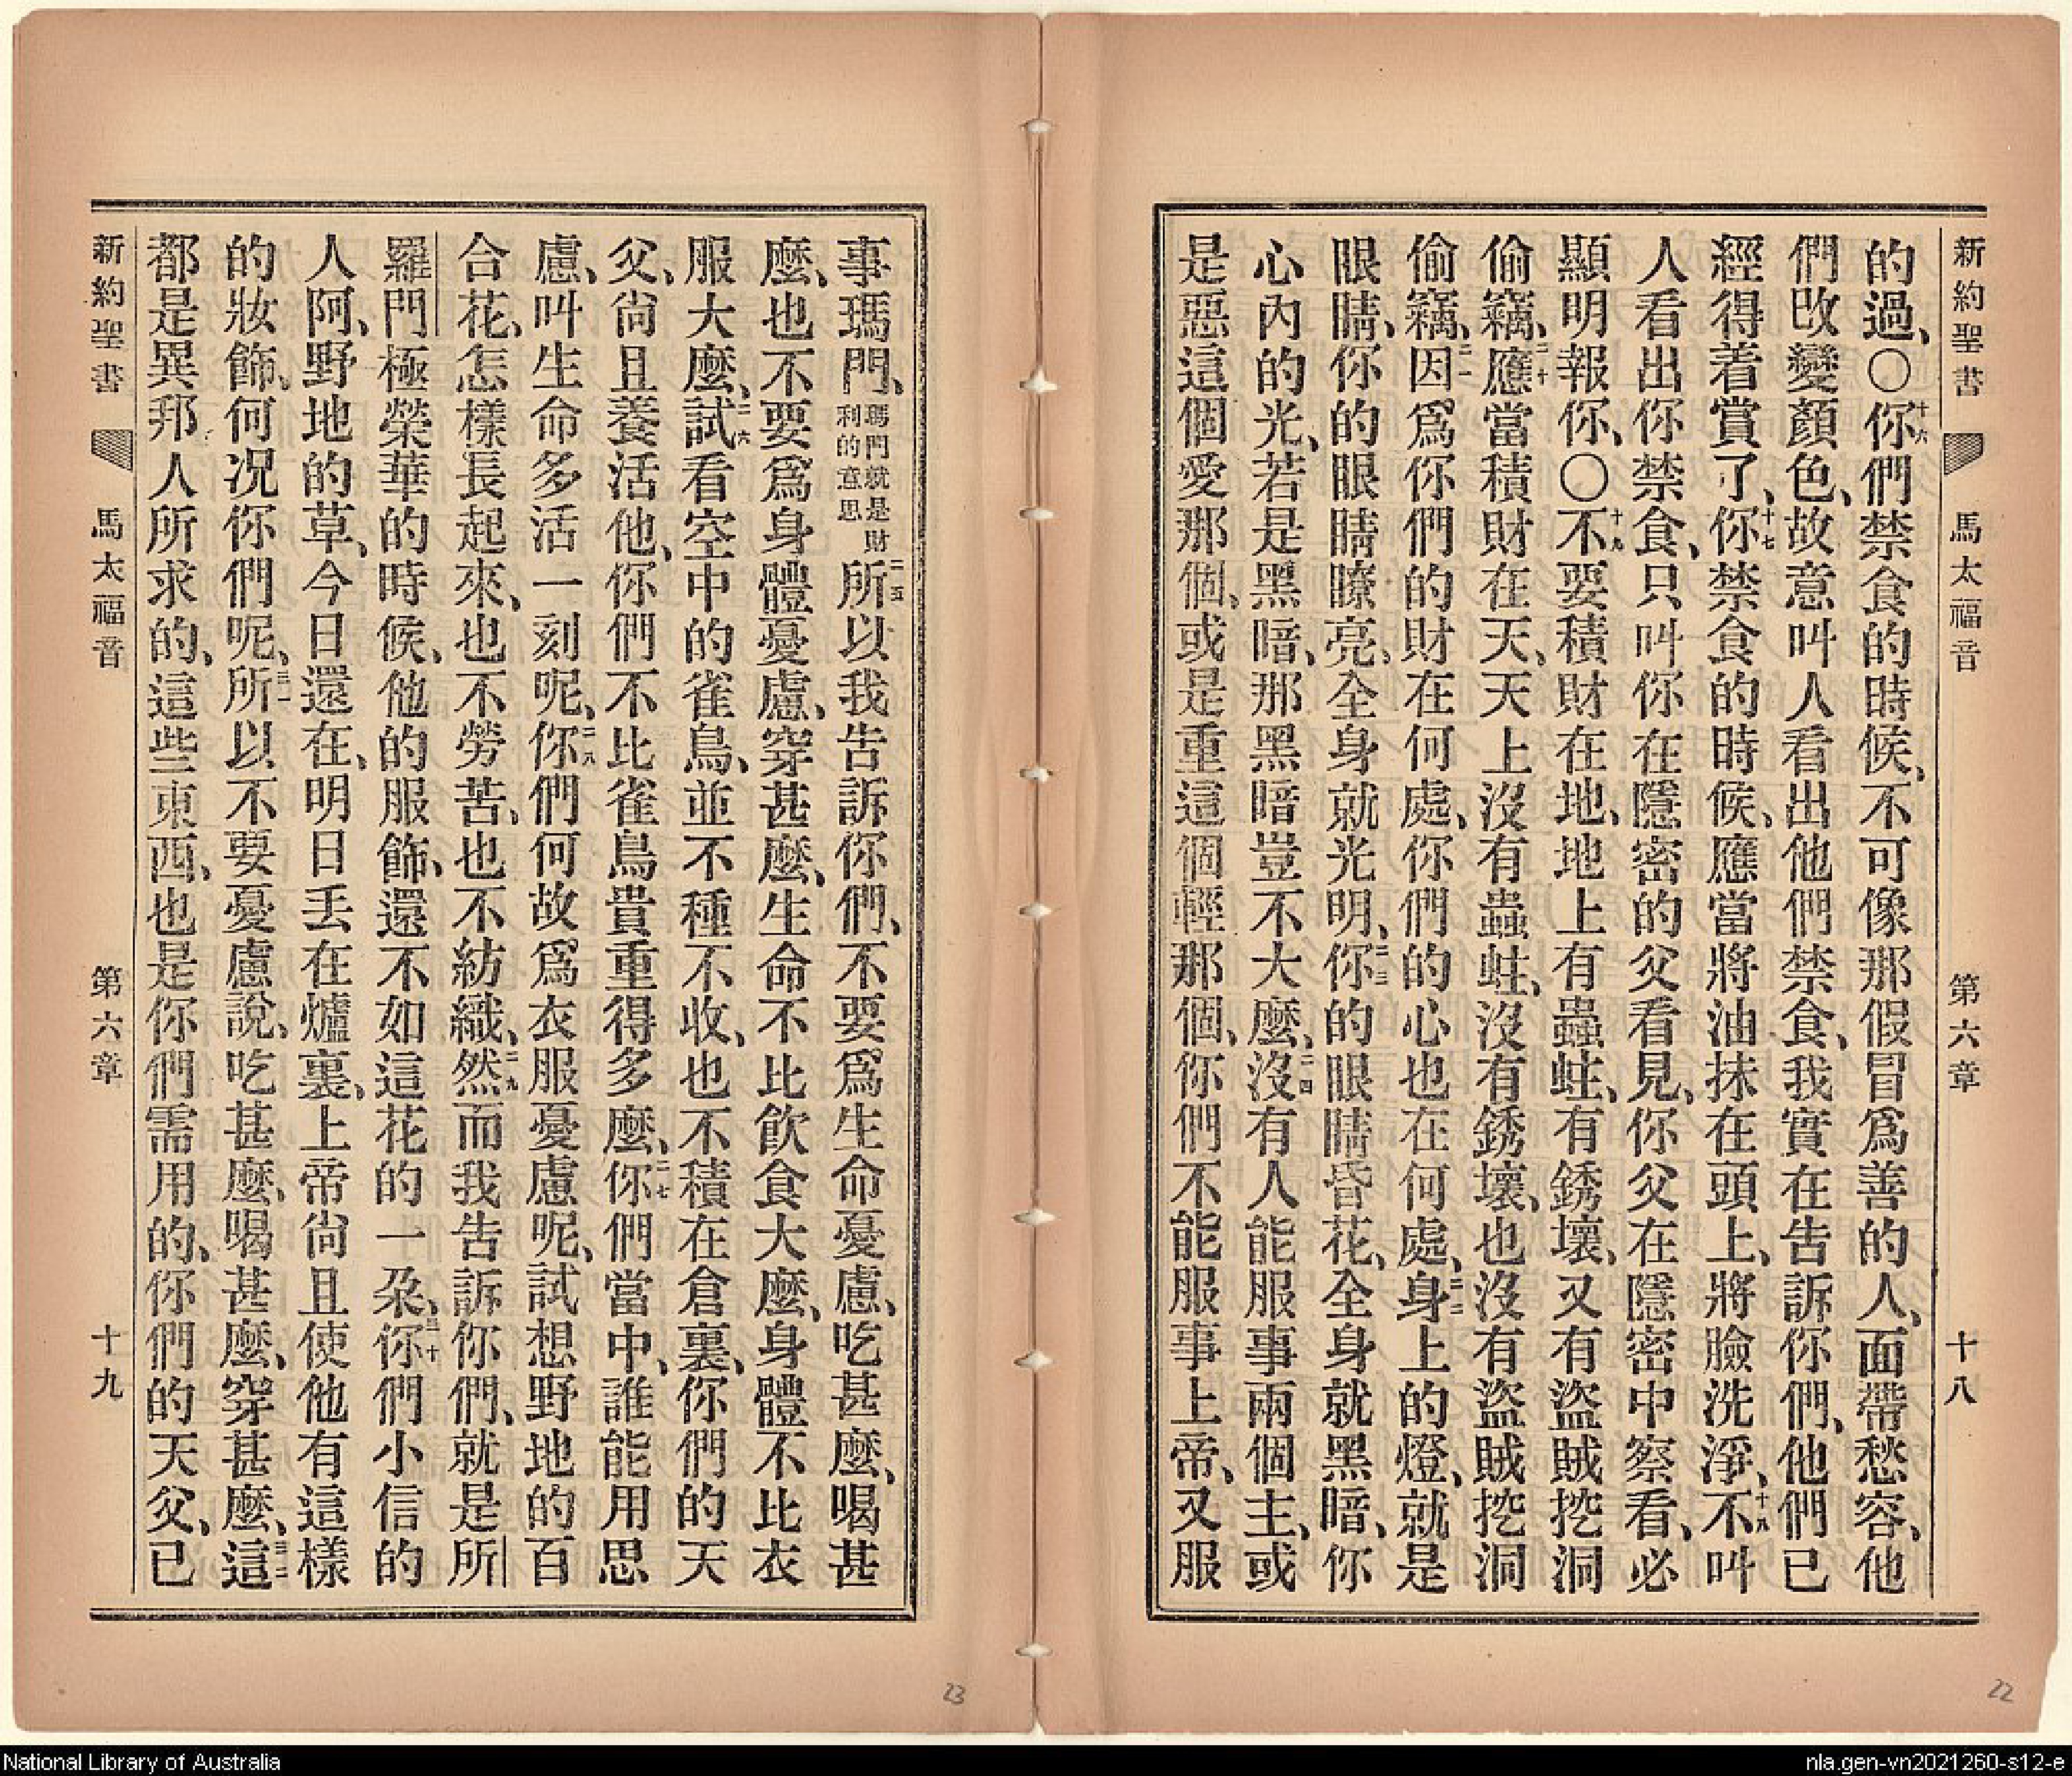 新約聖書 馬太福音 第六章 十八
的過、〇十六你們禁食的時候、不可像那假冒爲善的人、面帶愁容、他
們改變顏色、故意叫人看出他們禁食、我實在告訴你們、他們已
經得着賞了、十七你禁食的時候、應當將油抹在頭上、將臉洗淨、十九不叫
人看出你禁食、只叫你在隱密的父看見、你父在隱密中察看、必
顯明報你、〇十九不要積財在地、地上有蟲蛀、有銹壞、又有盜賊挖洞
偷竊、二十應當積財在天、天上沒有蟲蛀、沒有銹壞、也沒有盜賊挖洞
偷竊、二一因爲你們的財在何處、你們的心也在何處、二二身上的燈、就是
眼睛、你的眼睛瞭亮、全身就光明、二三你的眼睛昏花、全身就黑暗、你
心內的光、若是黑暗、那黑暗豈不大麼、二四沒有人能服事兩個主、或
是惡這個愛那個、或是重這個輕那個、你們不能服事上帝、又服
事瑪門、瑪門就是財利的意思二五所以我告訴你們、不要爲生命憂慮、吃甚麼、喝甚
麼、也不要爲身體憂慮、穿甚麼、生命不比飲食大麼、身體不比衣
服大麼、二六試看空中的雀鳥、並不種不收、也不積在倉裏、你們的天
父、尙且養活他、你們不比雀鳥貴重得多麼、二七你們當中、誰能用思
慮、叫生命多活一刻呢、二八你們何故爲衣服憂慮呢、試想野地的百
合花、怎樣長起來、也不勞苦、也不紡織、二九然而我告訴你們、就是所
羅門極榮華的時候、他的服飾、還不如這花的一朶、三十你們小信的
人阿、野地的草、今日還在、明日丢在爐裏、上帝尙且使他有這樣
的妝飾、何况你們呢、三一所以不要憂慮說、吃甚麼、喝甚麼、穿甚麼、三二這
都是異邦人所求的、這些東西、也是你們需用的、你們的天父、已
新約聖書 馬太福音 第六章 十九
23
22
National Library of Australia
nla.gen-vn2021260-s12-e